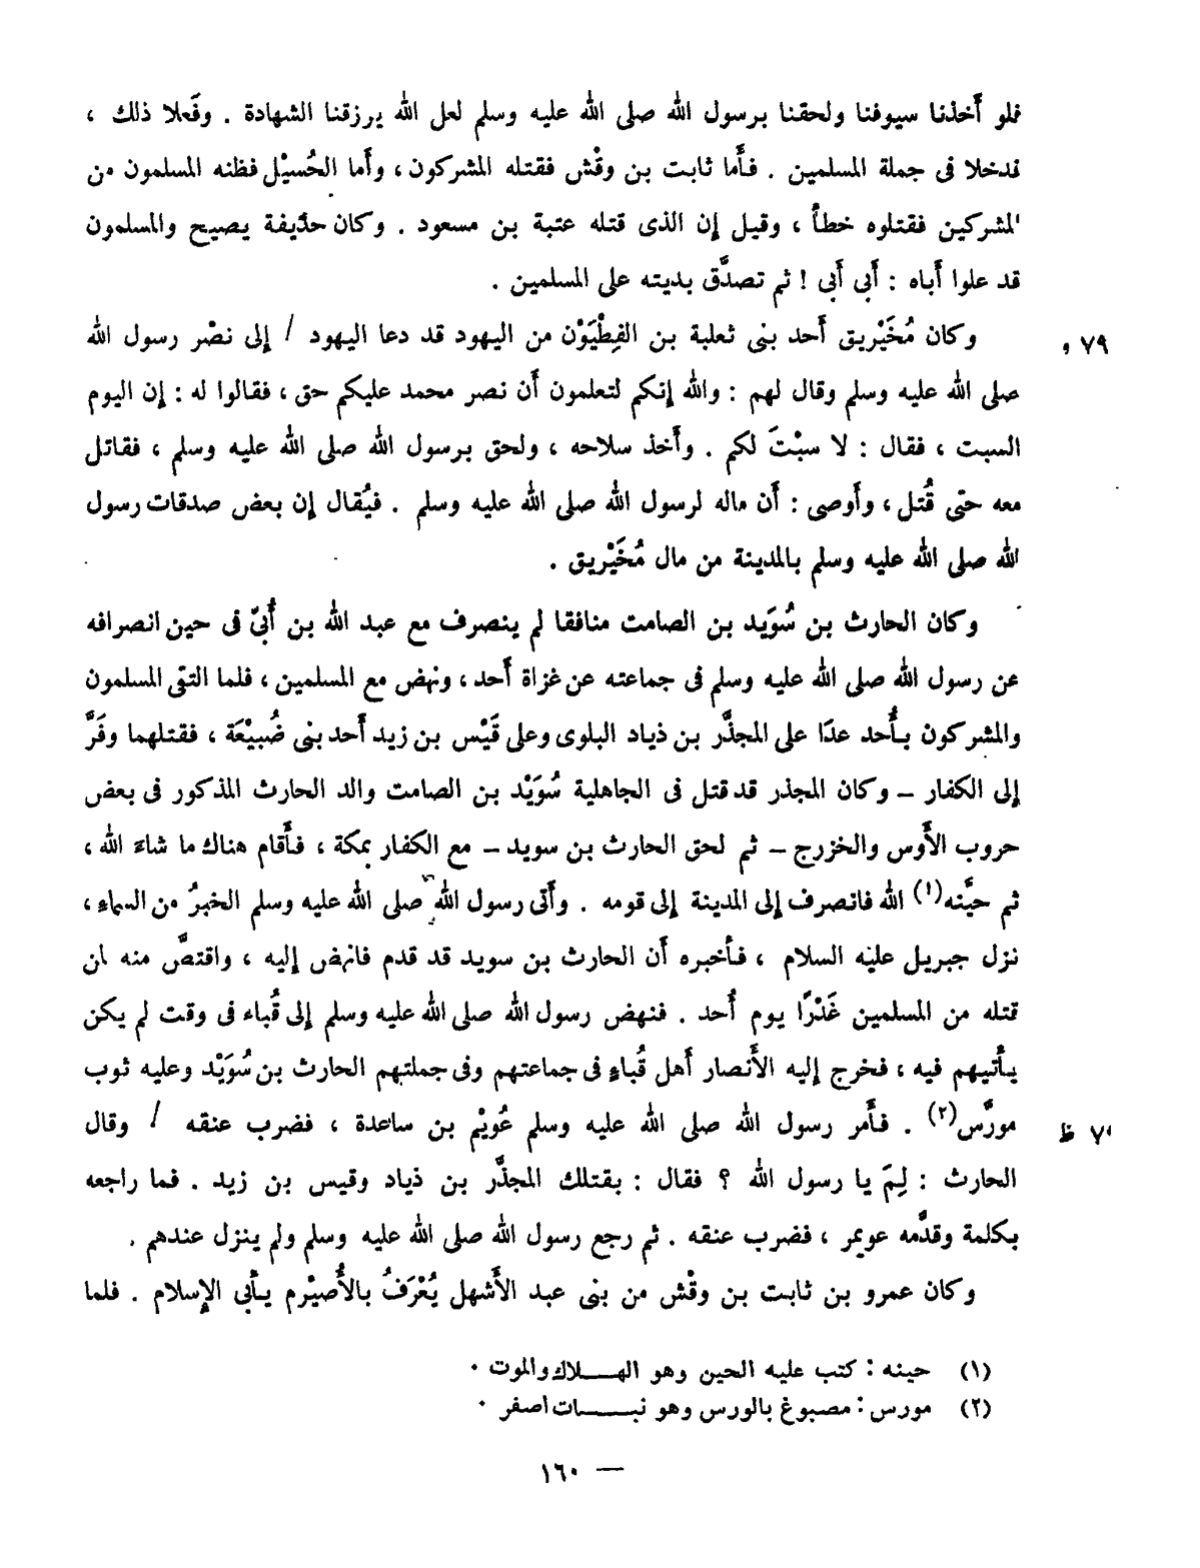 فلو أَخذنا سيوفنا ولحقنا برسول الله صلى الله عليه وسلم لعل الله يرزقنا الشهادة . وفَعلا ذلك ،
فدخلا فى جملة المسلمين . فأَما ثابت بن وقْش فقتله المشركون ، وأَما الحُسيْل فظنه المسلمون من
المشركين فقتلوه خطأً ، وقيل إن الذى قتله عتبة بن مسعود . وكان حذيفة يصيح والمسلمون
قد علوا أَباه : أَبى أَبى ! ثم تصدَّق بديته على المسلمين .
وكان مُخَيْريق أَحد بنى ثعلبة بن الفِطْيَوْن من اليهود قد دعا اليهود / إلى نصْر رسول الله
٧٩ و
صلى الله عليه وسلم وقال لهم : والله إنكم لتعلمون أَن نصر محمد عليكم حق ، فقالوا له : إن اليوم
السبت ، فقال : لا سبْتَ لكم . وأَخذ سلاحه ، ولحق برسول الله صلى الله عليه وسلم ، فقاتل
معه حتى قُتل ، وأَوصى : أَن ماله لرسول الله صلى الله عليه وسلم . فيُقال إن بعض صدقات رسول
الله صلى الله عليه وسلم بالمدينة من مال مُخَيْريق .
وكان الحارث بن سُوَيد بن الصامت منافقا لم ينصرف مع عبد الله بن أُبىّ فى حين انصرافه
عن رسول الله صلى الله عليه وسلم فى جماعته عن غزاة أُحد ، ونهض مع المسلمين ، فلما التقى المسلمون
والمشركون بأُحد عدَا على المجذَّر بن ذياد البلوى وعلى قَيْس بن زيد أَحد بنى ضُبيْعَة ، فقتلهما وفَرَّ
إلى الكفار – وكان المجذر قد قتل فى الجاهلية سُوَيْد بن الصامت والد الحارث المذكور فى بعض
حروب الأَوس والخزرج – ثم لحق الحارث بن سويد – مع الكفار بمكة ، فأَقام هناك ما شاءَ الله ،
ثم حيَّنه(١) الله فانصرف إلى المدينة إلى قومه . وأَتى رسول الله صلى الله عليه وسلم الخبرُ من السماءِ ،
نزل جبريل عليه السلام ، فأَخبره أَن الحارث بن سويد قد قدم فانهض إليه ، واقتصَّ منه لمن
قتله من المسلمين غَدْرًا يوم أُحد . فنهض رسول الله صلى الله عليه وسلم إلى قُباء فى وقت لم يكن
يأْتيهم فيه ، فخرج إليه الأَنصار أَهل قُباءٍ فى جماعتهم وفى جملتهم الحارث بن سُوَيْد وعليه ثوب
مورَّس(٢) . فأَمر رسول الله صلى الله عليه وسلم عُويْم بن ساعدة ، فضرب عنقه / وقال
٧٩ ظ
الحارث : لِمَ يا رسول الله ؟ فقال : بقتلك المجذَّر بن ذياد وقيس بن زيد . فما راجعه
بكلمة وقدَّمه عويمر ، فضرب عنقه . ثم رجع رسول الله صلى الله عليه وسلم ولم ينزل عندهم .
وكان عمرو بن ثابت بن وقْش من بنى عبد الأَشهل يُعْرَفُ بالأُصيْرم يأْبى الإسلام . فلما
(١) حينه : كتب عليه الحين وهو الهـلاك والموت .
(٢) مورس : مصبوغ بالورس وهو نبـات أصفر .
— ١٦٠